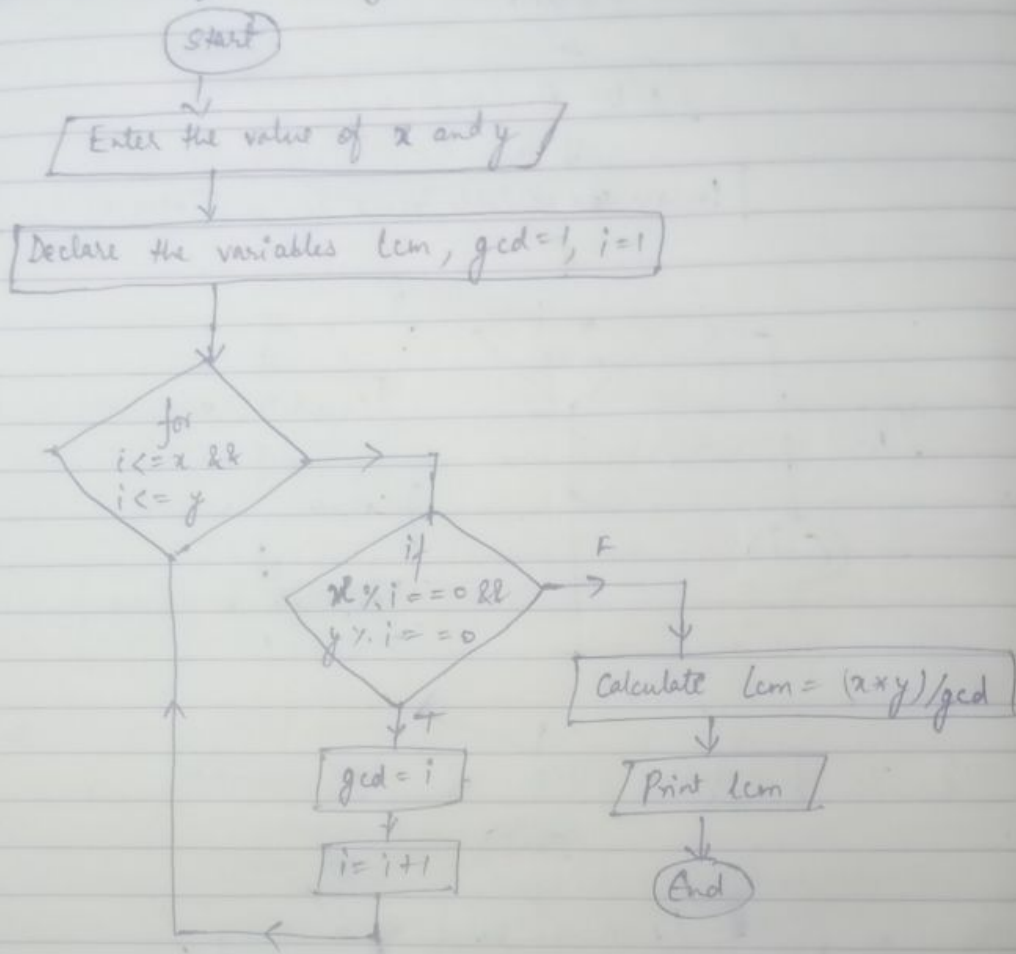 Start
Enter the value of x and y
Declare the variables lcm, gcd=1, i=1
for
i<=x &&
i<= y
if
x%i==0 &&
y%i==0
F
T
Calculate lcm= (x*y)/gcd
gcd=i
Print lcm
i=i+1
End